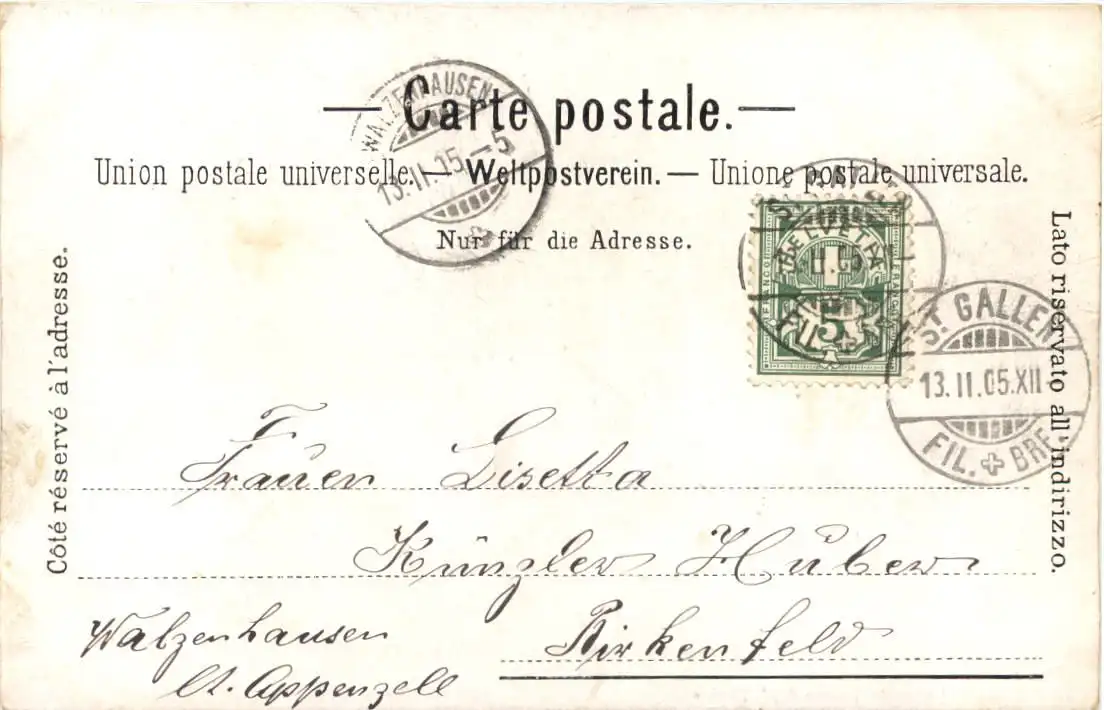 — Carte postale. —
Union postale universelle. — Weltpostverein. — Unione postale universale.
Nur für die Adresse.
Côté réservé à l'adresse.
Lato riservato all'indirizzo.
WALZENHAUSEN
13. II. 15 – 5
HELVETIA
FRANCO FRANCO
5
II. 05
FIL.
ST. GALLEN
13. II. 05. XII
FIL. BRF.
Frauen Lisetta
Künzler Huber
Birkenfeld
Walzenhausen
Ct. Appenzell